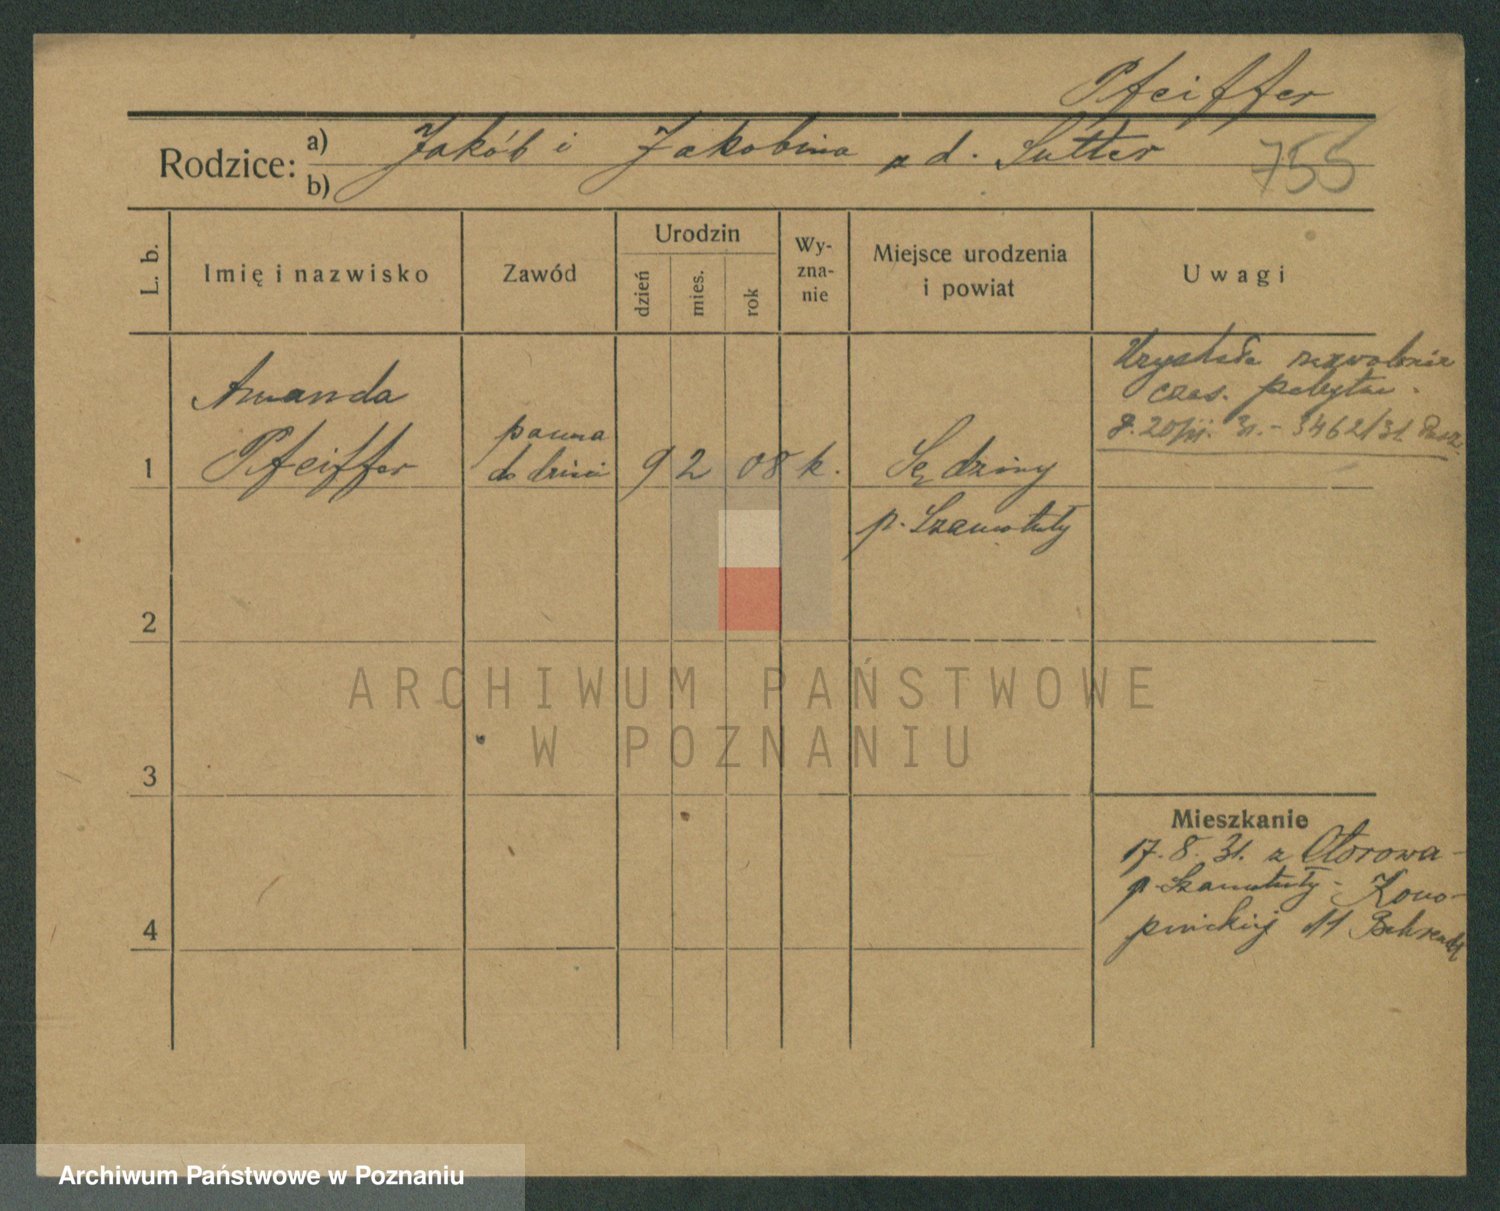 Pfeiffer
Rodzice: a) Jakób i Jakobina z d. Sutter
b)
755
L. b. Imię i nazwisko Zawód Urodzin dzień mies. rok Wy-zna-nie Miejsce urodzenia i powiat Uwagi
Uzyskała zezwolenie
czas. pobytu
Amanda
panna
20/ 31. - 3462/31
1 Pfeiffer do dzieci 9 2 08 k. Sędziny
p. Szamotuły
2
ARCHIWUM PAŃSTWOWE
W POZNANIU
3
Mieszkanie
17. 8. 31. z Otorowa -
p. Szamotuły - Kono-
4
pnickiej 11 Behrendt
Archiwum Państwowe w Poznaniu